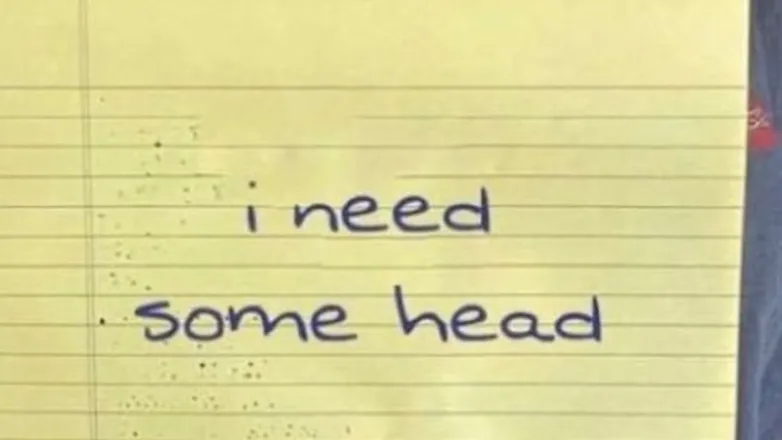 i need
some head